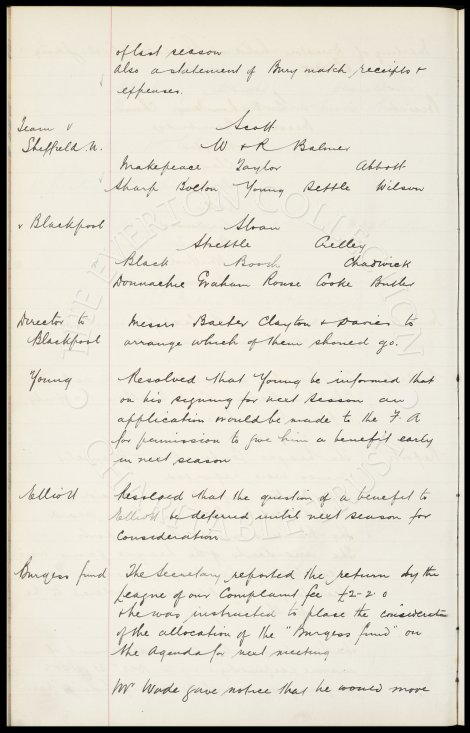 of last season
also a statement of Bury match receipts &
expenses.
Team v
Sheffield U.
Scott
W & R Balmer
Makepeace Taylor Abbott
Sharp Bolton Young Settle Wilson
v Blackpool
Sloan
Strettle Crelley
Black Booth Chadwick
Donnachie Graham Rouse Cooke Butler
Director to
Blackpool
Messrs Baxter Clayton & Davies to
arrange which of them should go.
Young
Resolved that Young be informed that
on his signing for next season an
application would be made to the F.A
for permission to give him a benefit early
in next season
Elliott
Resolved that the question of a benefit to
Elliott be deferred until next season for
consideration
Burgess fund
The Secretary reported the return by the
League of our Complaint fee £2-2-0
& he was instructed to place the consideration
of the allocation of the "Burgess fund" on
the Agenda for next meeting
Mr Wade gave notice that he would move
THE EVERTON COLLECTION
CHARITABLE TRUST